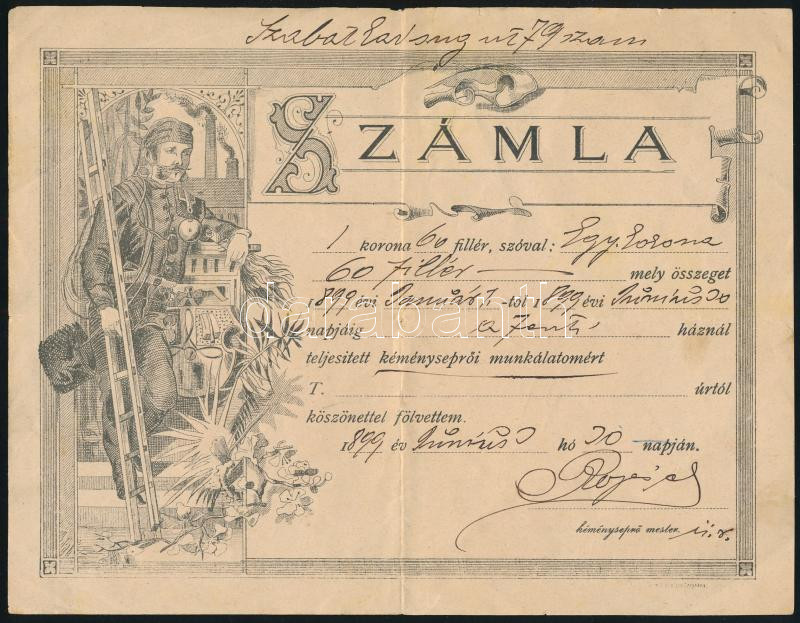 Szabadság út 79 szám
SZÁMLA
1 korona 60 fillér, szóval: Egy korona
60 fillér mely összeget
1899 évi Január 1 -től 1899 évi Június 30
napjáig a fenti háznál
teljesitett kéményseprői munkálatomért
T. úrtól
köszönettel fölvettem.
1899 év Június hó 30 napján.
kéményseprő mester.
darabanth